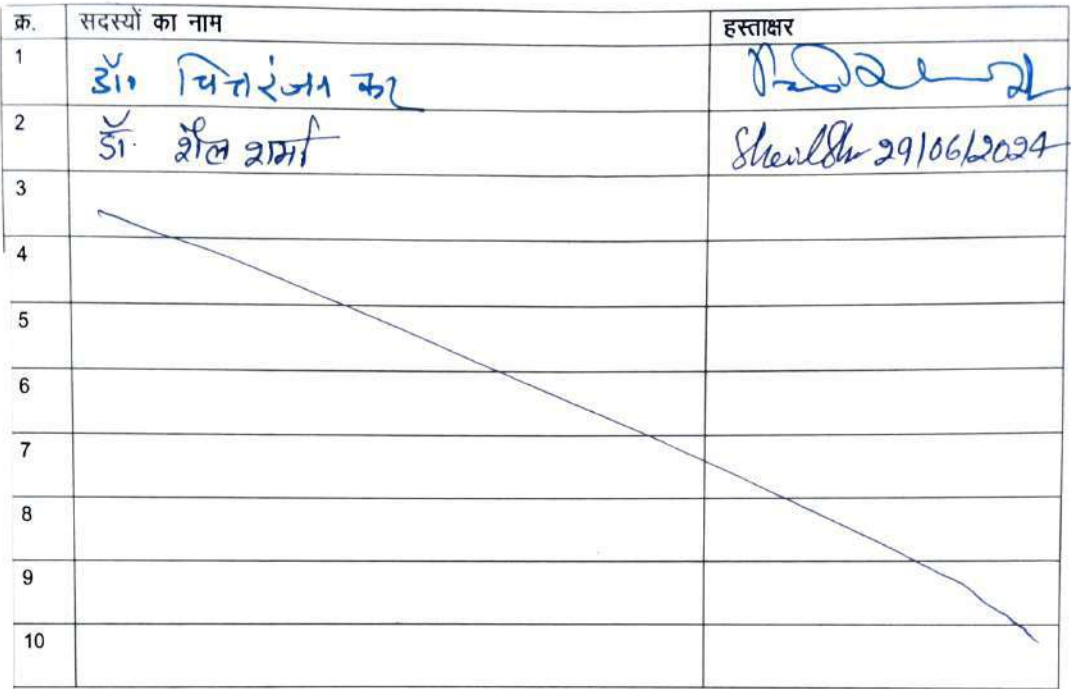 क्र. सदस्यों का नाम हस्ताक्षर
1 डॉ. चित्तरंजन कर
2 डॉ. शैल शर्मा 29/06/2024
3
4
5
6
7
8
9
10